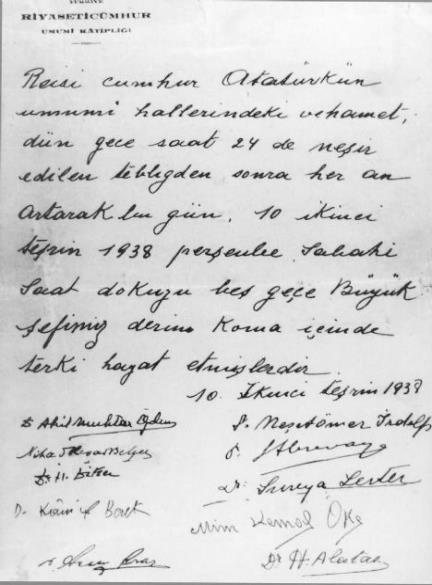 TÜRKİYE
RİYASETİCÜMHUR
UMUMİ KÂTİPLİĞİ
Reisi cumhur Atatürkün
umumî hallerindeki vehamet,
dün gece saat 24 de neşir
edilen tebliğden sonra her an
artarak bu gün, 10 ikinci
teşrin 1938 perşenbe sabahi
saat dokuzu beş geçe Büyük
şefimiz derin koma içinde
terki hayat etmişlerdir.
10. İkinci teşrin 1938
Dr Akil Muhtar Özden
P. Neşetömer İrdelp
Dr. Süreya Serter
Mim Kemal Öke
Dr H. Alatas